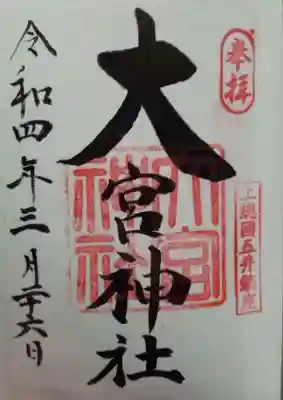 奉拝
上総国五井鎮座
大宮神社
大宮神社
令和四年三月二十六日